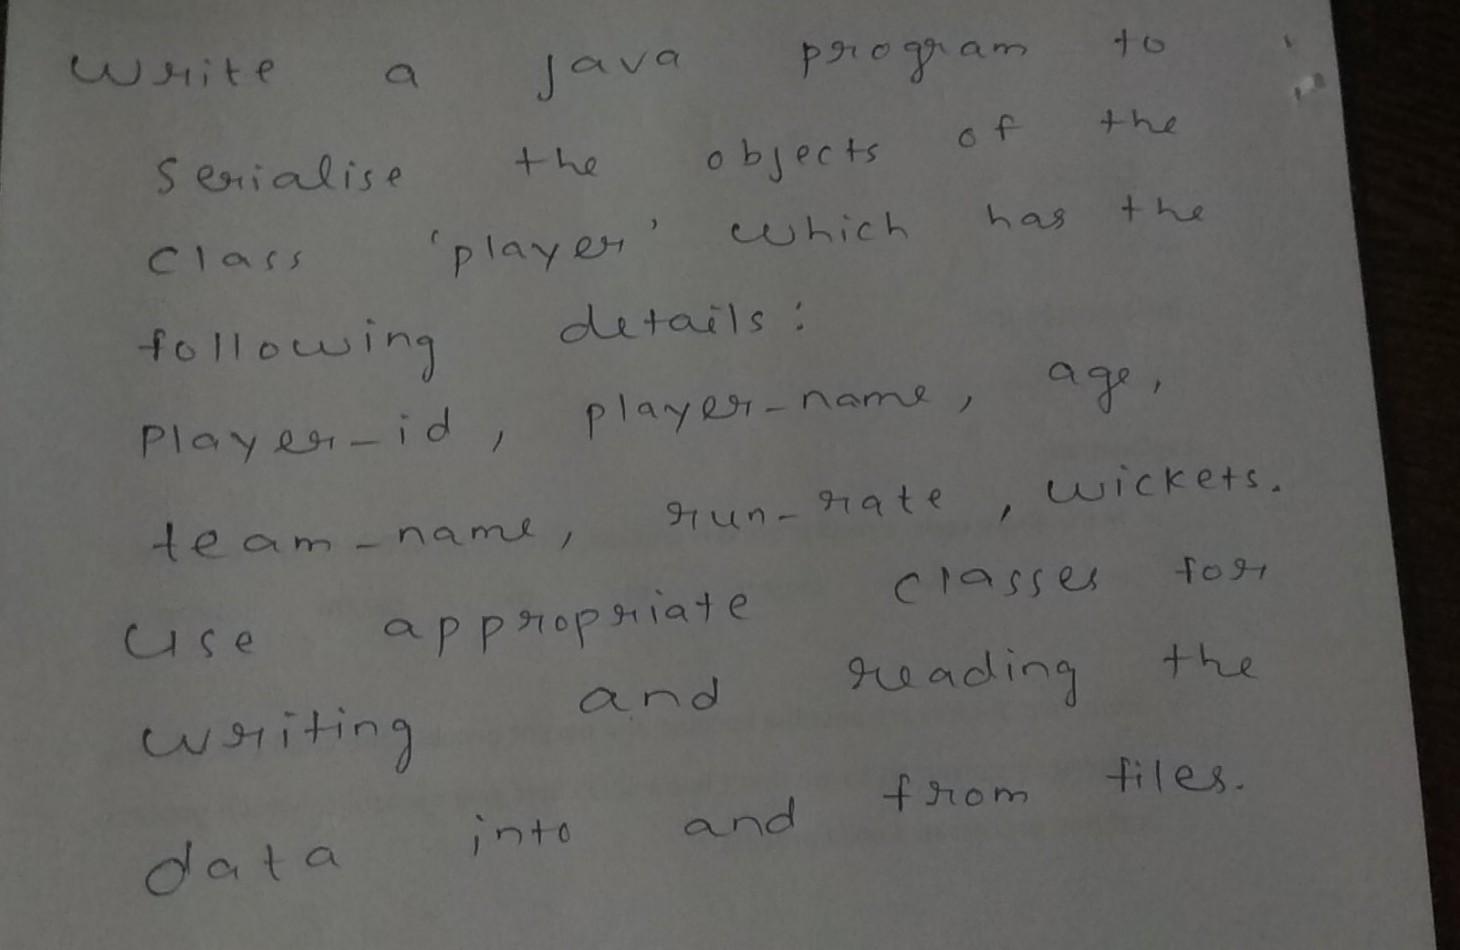 Write a Java program to
serialise the objects of the
class 'player' which has the
following details:
Player-id, player-name, age,
team-name, run-rate, wickets.
Use appropriate classes for
writing and reading the
data into and from files.